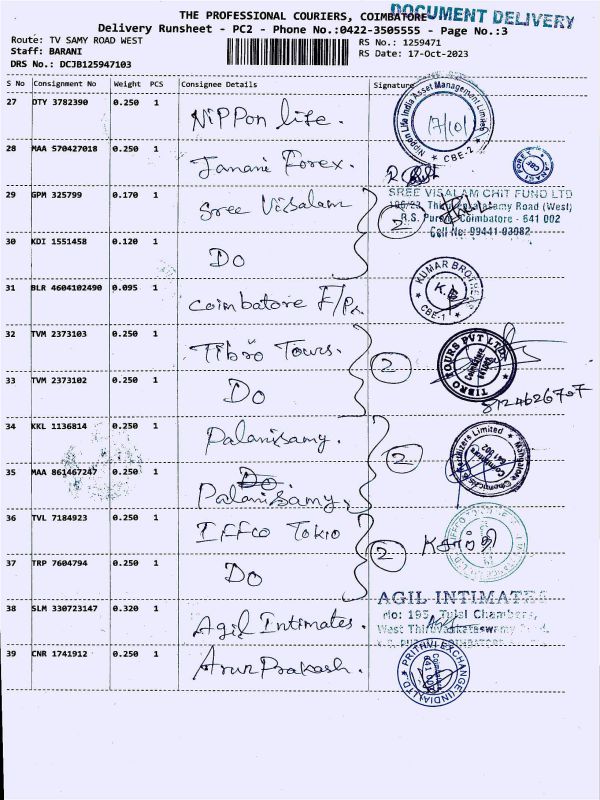 THE PROFESSIONAL COURIERS, COIMBATORE
DOCUMENT DELIVERY
Delivery Runsheet - PC2 - Phone No.:0422-3505555 - Page No.:3
Route: TV SAMY ROAD WEST
RS No.: 1259471
Staff: BARANI
RS Date: 17-Oct-2023
DRS No.: DCJB125947103
S No Consignment No Weight PCS Consignee Details Signature
27 DTY 3782390 0.250 1 Nippon life.
Nippon Life India Asset Management Limited
17/10/
★ CBE-2 ★
28 MAA 570427018 0.250 1 Janani Forex.
29 GPM 325799 0.170 1 Sree Visalam
SREE VISALAM CHIT FUND LTD
(West)
R.S. Puram, Coimbatore - 641 002
Cell No: 09441 03082
2
30 KDI 1551458 0.120 1 Do
31 BLR 4604102490 0.095 1 Coimbatore
KUMAR BROTHERS
CBE-1
32 TVM 2373103 0.250 1 Tibro Tours.
2
TIBRO TOURS PVT LTD
Coimbatore
33 TVM 2373102 0.250 1 Do
34 KKL 1136814 0.250 1 Palanisamy.
2
Mangalore Chemicals & Fertilizers Limited
Coimbatore
641 002
35 MAA 861467247 0.250 1 Do
Palanisamy.
36 TVL 7184923 0.250 1 Iffco Tokio
2
37 TRP 7604794 0.250 1 Do
38 SLM 330723147 0.320 1 Agil Intimates.
AGIL INTIMATES
No: 195, Tulsi Chambers,
West
39 CNR 1741912 0.250 1 Arun Prakash.
PRITHVI EXCHANGE (INDIA) LTD
Coimbatore
641 002